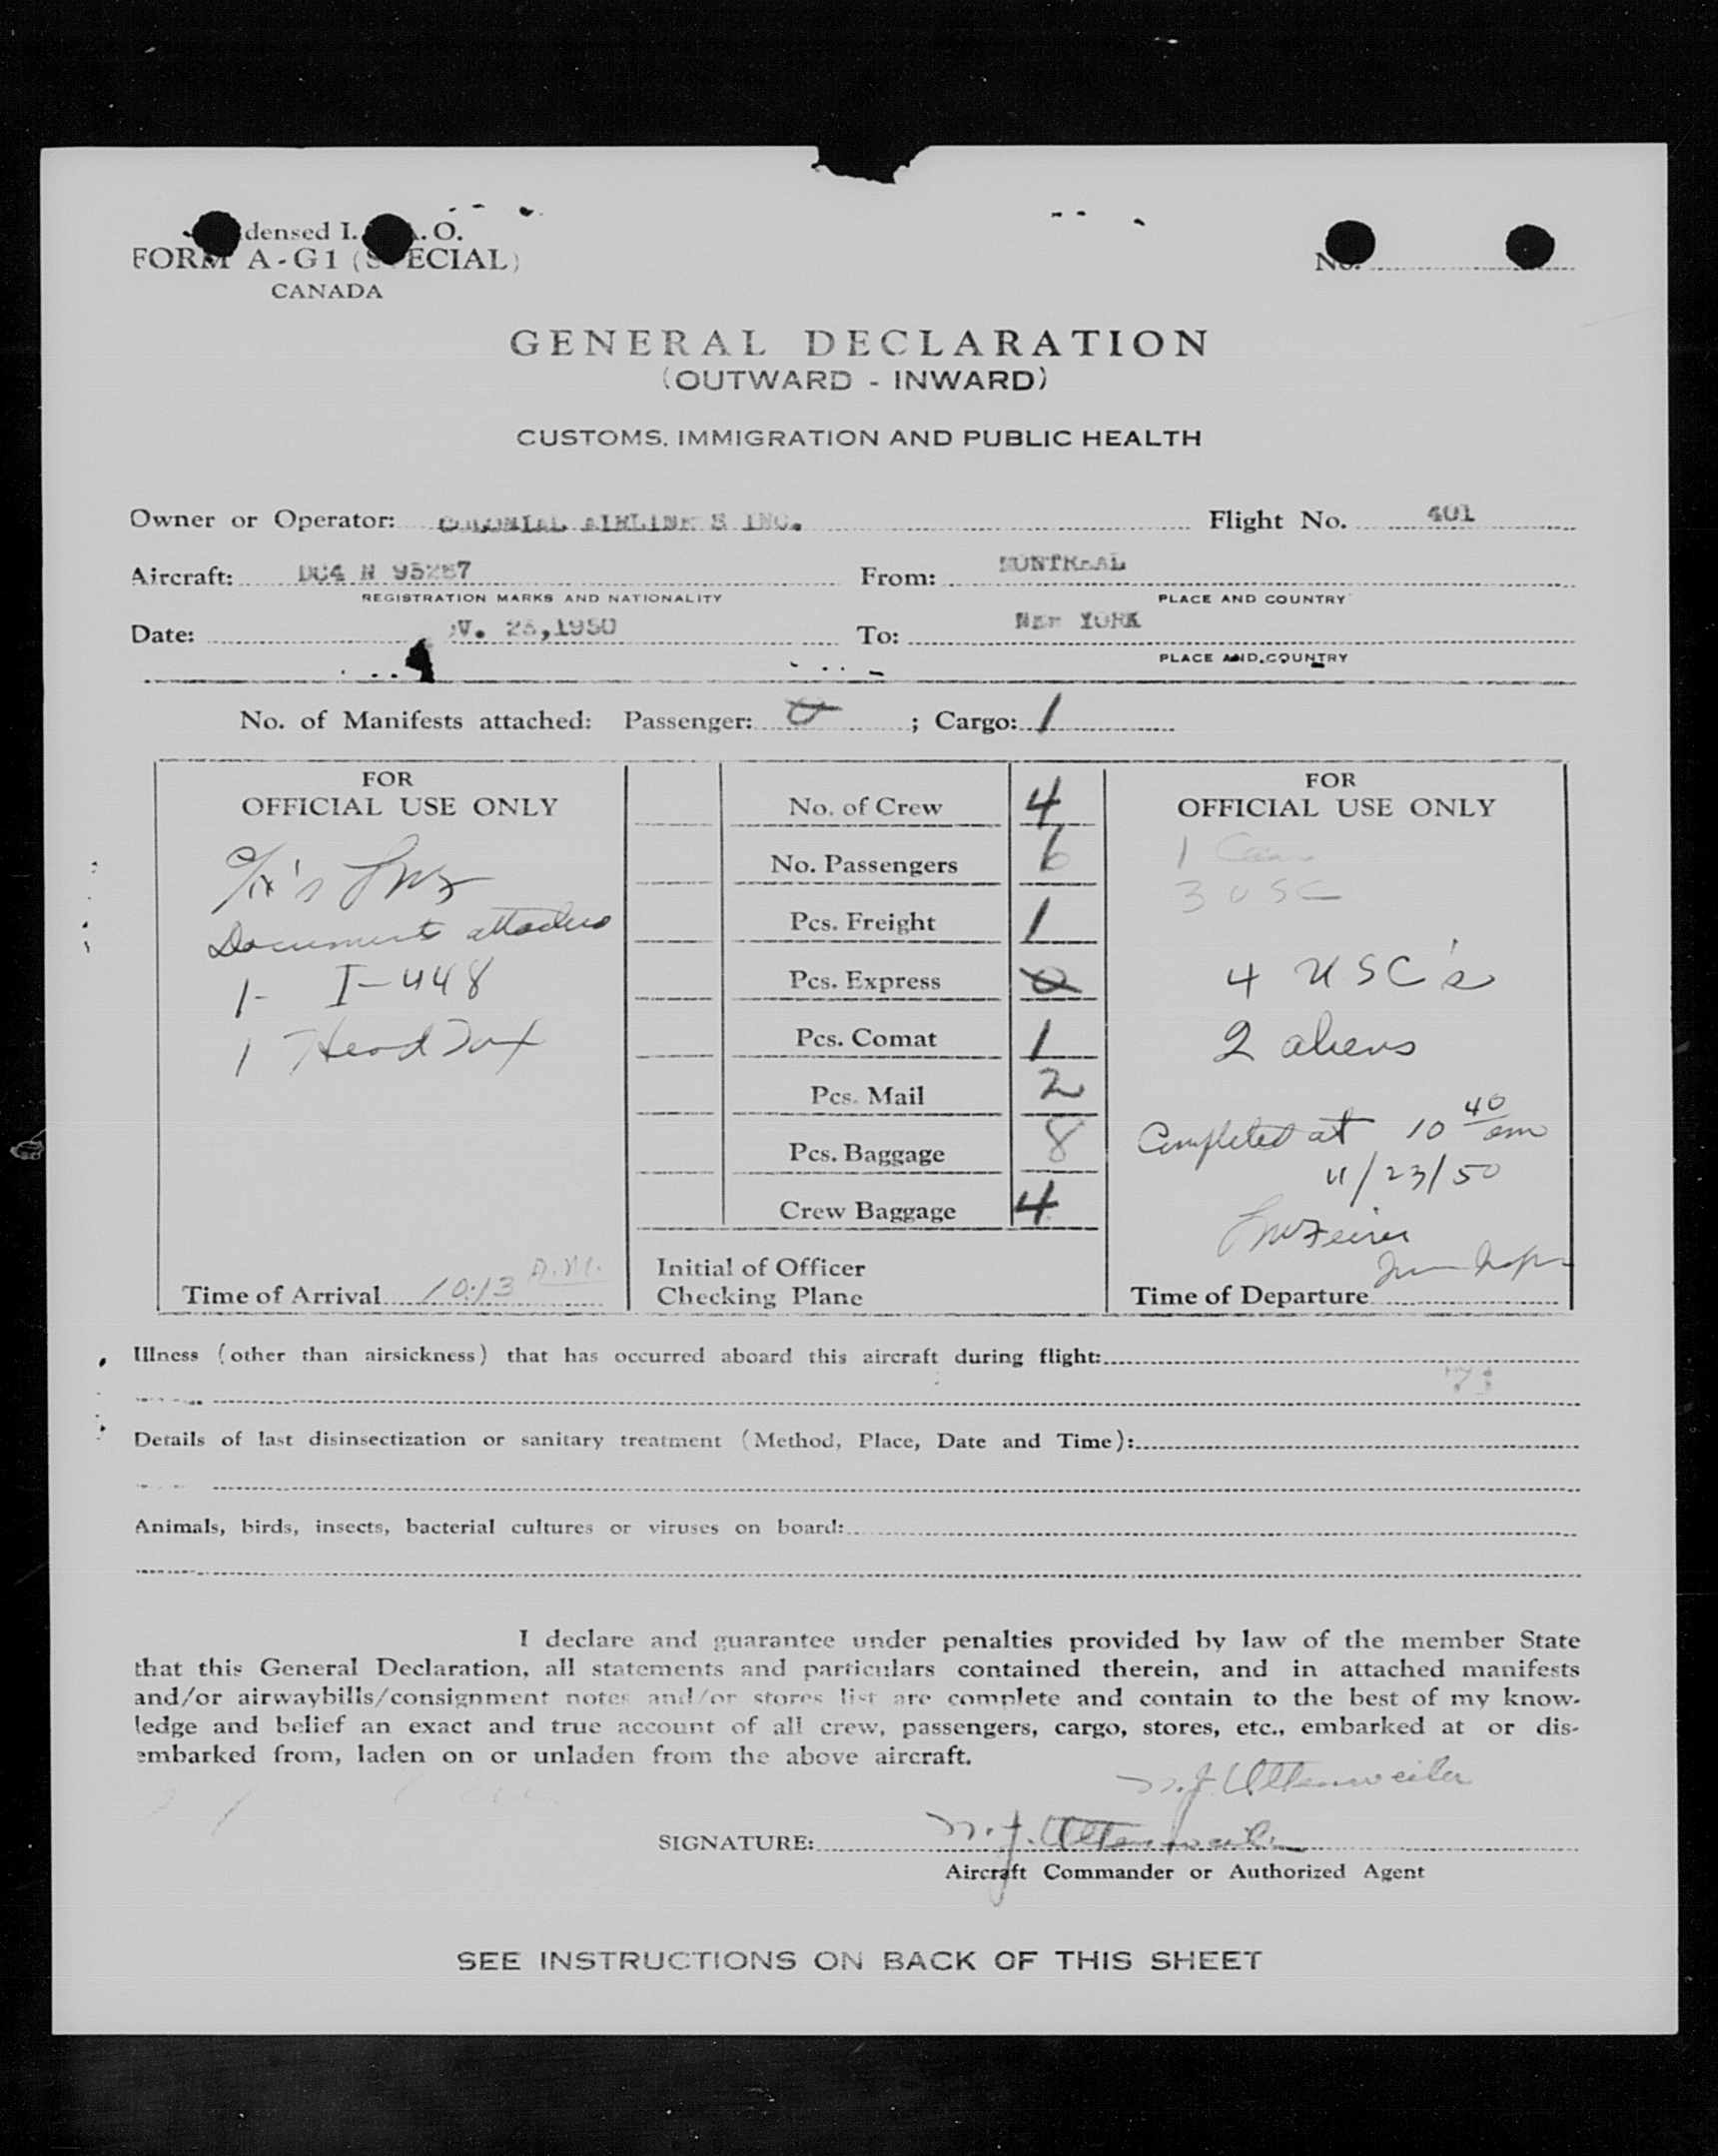 densed I. .O.
FORM A-G1 (SPECIAL)
CANADA
No.
GENERAL DECLARATION
(OUTWARD - INWARD)
CUSTOMS, IMMIGRATION AND PUBLIC HEALTH
Owner or Operator: COLONIAL AIRLINES INC. Flight No. 401
Aircraft: DC4 N 95287 From: MONTREAL
REGISTRATION MARKS AND NATIONALITY PLACE AND COUNTRY
Date: V. 23,1950 To: NEW YORK
PLACE AND COUNTRY
No. of Manifests attached: Passenger: 0 ; Cargo: 1
FOR
OFFICIAL USE ONLY
Documents attached
1- I-448
1 Head Tax
Time of Arrival 10:13 A.M.
No. of Crew 4
No. Passengers 6
Pcs. Freight 1
Pcs. Express 0
Pcs. Comat 1
Pcs. Mail 2
Pcs. Baggage 8
Crew Baggage 4
Initial of Officer
Checking Plane
FOR
OFFICIAL USE ONLY
1 Can
3 USC
4 USC's
2 aliens
Completed at 10 40 am
11/23/50
Time of Departure
Illness (other than airsickness) that has occurred aboard this aircraft during flight:
Details of last disinsectization or sanitary treatment (Method, Place, Date and Time):
Animals, birds, insects, bacterial cultures or viruses on board:
I declare and guarantee under penalties provided by law of the member State
that this General Declaration, all statements and particulars contained therein, and in attached manifests
and/or airwaybills/consignment notes and/or stores list are complete and contain to the best of my know-
ledge and belief an exact and true account of all crew, passengers, cargo, stores, etc., embarked at or dis-
embarked from, laden on or unladen from the above aircraft.
N.J. Uttenweiler
SIGNATURE: N.J. Uttenweiler
Aircraft Commander or Authorized Agent
SEE INSTRUCTIONS ON BACK OF THIS SHEET